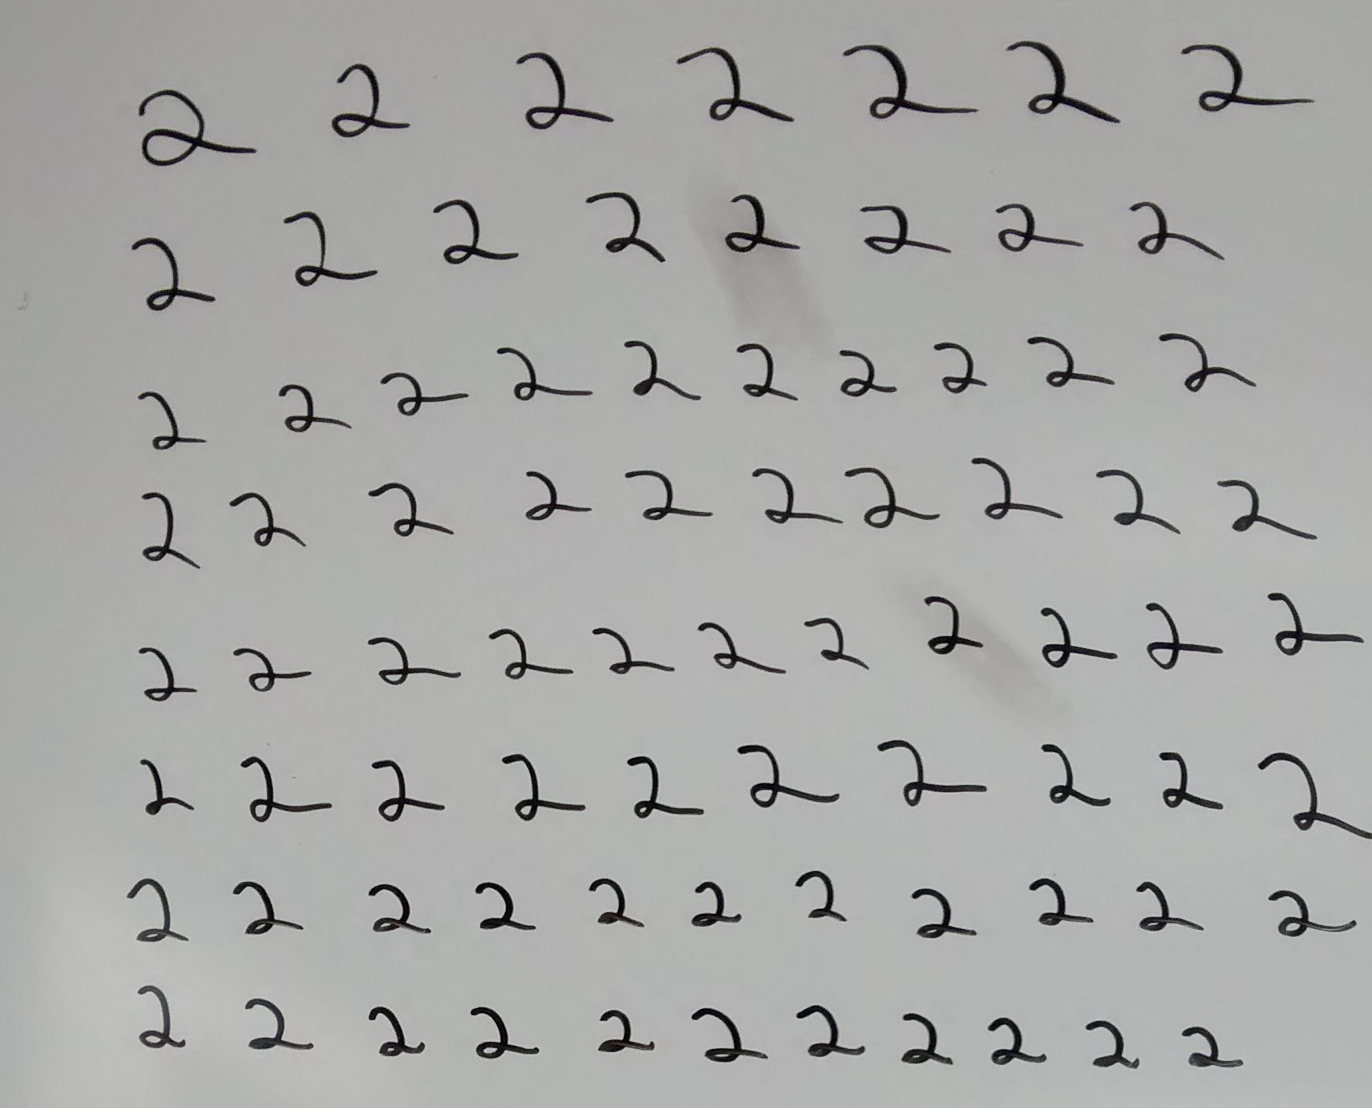 2 2 2 2 2 2 2
2 2 2 2 2 2 2 2
2 2 2 2 2 2 2 2 2 2
2 2 2 2 2 2 2 2 2 2
2 2 2 2 2 2 2 2 2 2 2
2 2 2 2 2 2 2 2 2 2
2 2 2 2 2 2 2 2 2 2 2
2 2 2 2 2 2 2 2 2 2 2